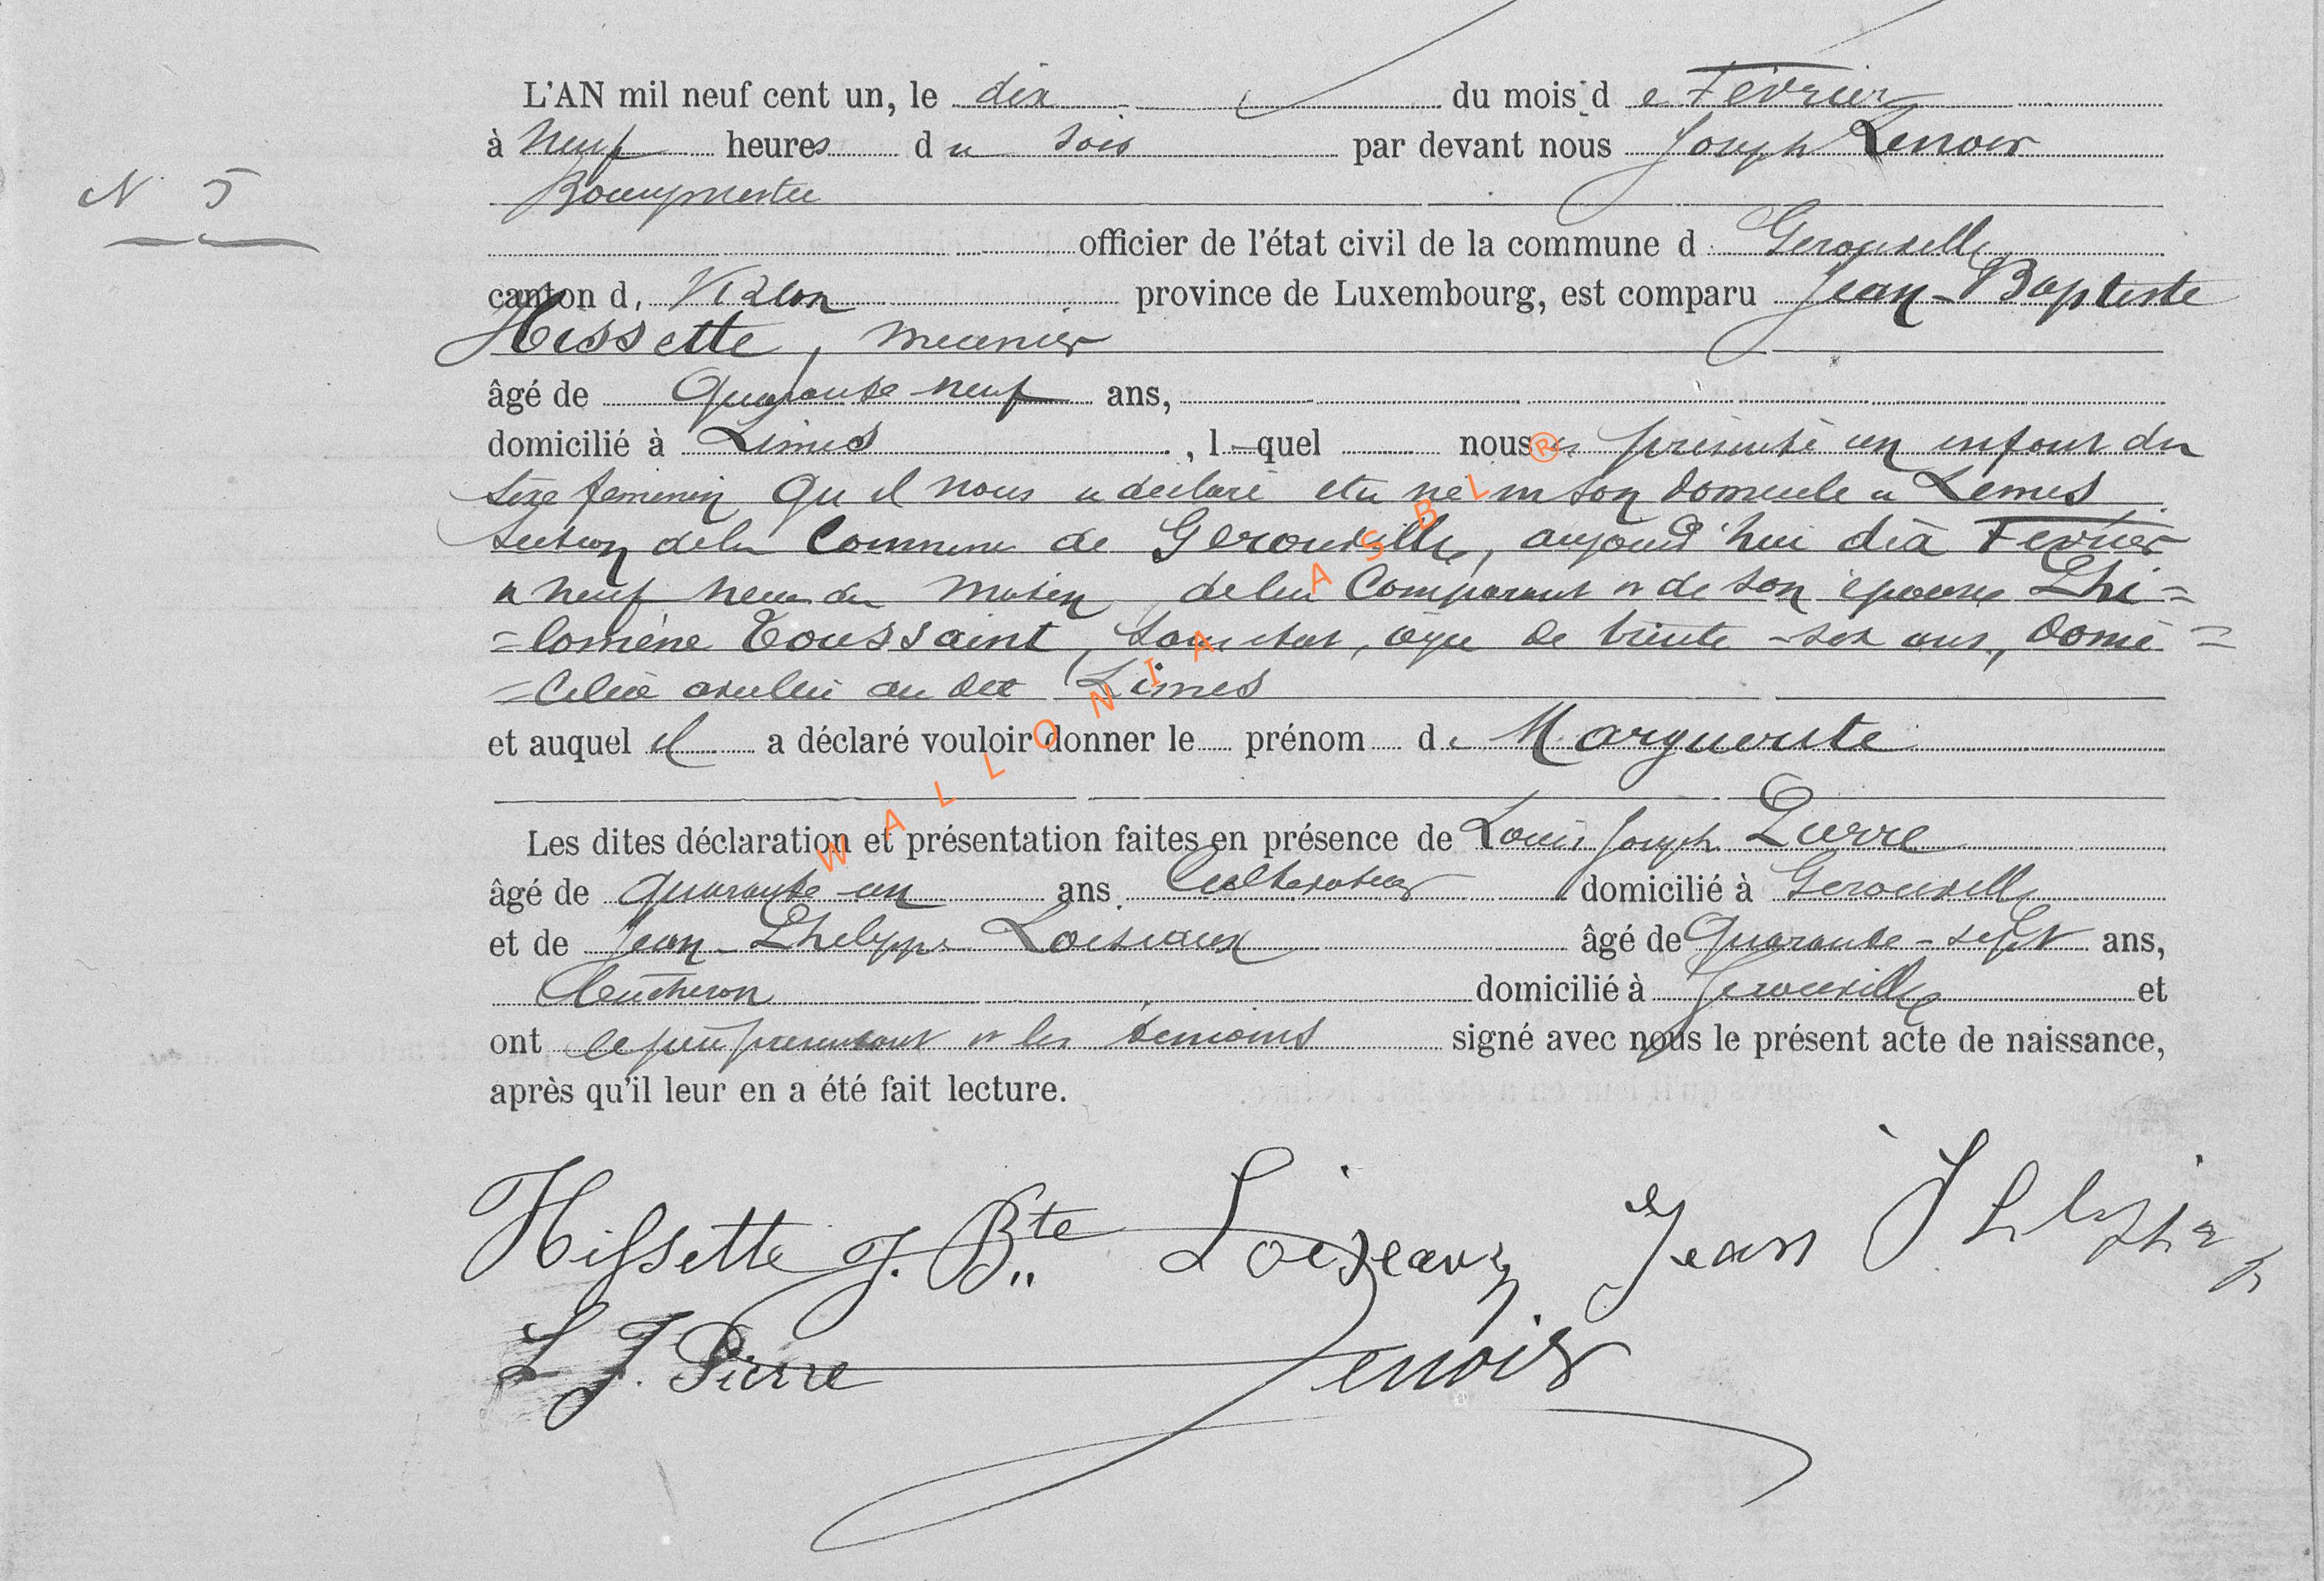 L'AN mil neuf cent un, le dix du mois de Février
à neuf heures du soir par devant nous Joseph Lenoir
N 5
Bourgmestre
officier de l'état civil de la commune d Gerouville
canton d. Virton province de Luxembourg, est comparu Jean-Baptiste
Hissette, meunier
âgé de quarante neuf ans,
domicilié à Limes, l-quel nous a présenté un enfant du
sexe féminin qu'il nous a déclaré être né en son domicile a Limes
section de la Commune de Gerouville, aujourd'hui dix Février
a neuf heures du matin, de lui Comparant et de son épouse Phi=
=lomène Toussaint, sans état, âgée de trente-six ans, domi=
=ciliée avec lui au dit Limes
et auquel il a déclaré vouloir donner le prénom de Marguerite
Les dites déclaration et présentation faites en présence de Louis Joseph Pierre
âgé de quarante-un ans Cultivateur domicilié à Gerouville
et de Jean-Philippe Loiseaux âgé de quarante-sept ans,
bûcheron domicilié à Gerouville et
ont le père présentant et les témoins signé avec nous le présent acte de naissance,
après qu'il leur en a été fait lecture.
Hissette J. Bte Loiseaux Jean
L J. Pierre Lenoir
WALLONIA ASBL ®